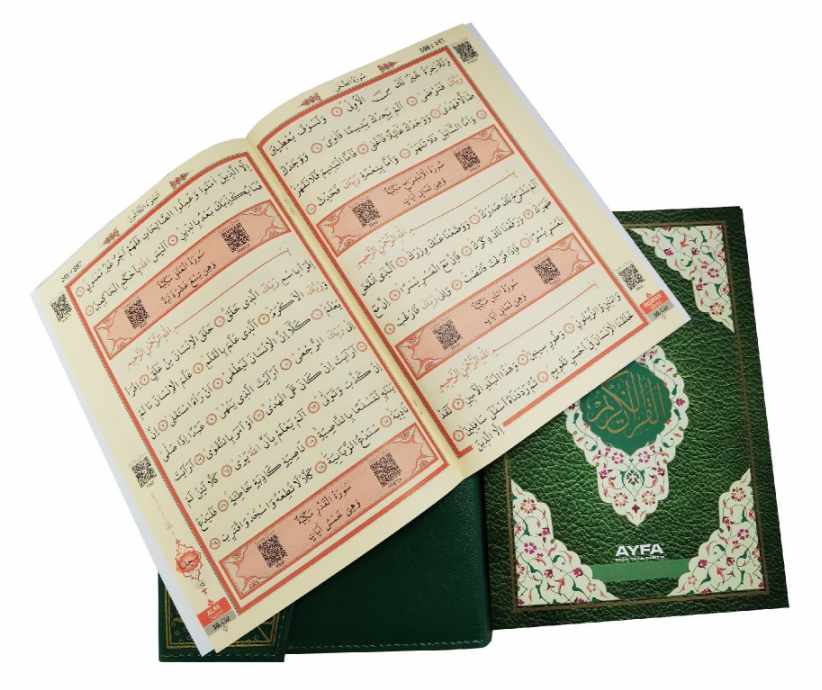 سُورَةُ الضُّحٰى
وَلَلْاٰخِرَةُ خَيْرٌ لَكَ مِنَ الْاُولٰى وَلَسَوْفَ يُعْطِيكَ
رَبُّكَ فَتَرْضٰى اَلَمْ يَجِدْكَ يَتِيمًا فَاٰوٰى وَوَجَدَكَ
ضَالًّا فَهَدٰى وَوَجَدَكَ عَائِلًا فَاَغْنٰى فَاَمَّا الْيَتِيمَ فَلَا تَقْهَرْ
وَاَمَّا السَّائِلَ فَلَا تَنْهَرْ وَاَمَّا بِنِعْمَةِ رَبِّكَ فَحَدِّثْ
سُورَةُ الْاِنْشِرَاحِ مَكِّيَّةٌ
وَهِيَ ثَمَانِ اٰيَاتٍ
بِسْمِ اللهِ الرَّحْمٰنِ الرَّحِيمِ
اَلَمْ نَشْرَحْ لَكَ صَدْرَكَ وَوَضَعْنَا عَنْكَ وِزْرَكَ اَلَّذِي اَنْقَضَ
ظَهْرَكَ وَرَفَعْنَا لَكَ ذِكْرَكَ فَاِنَّ مَعَ الْعُسْرِ يُسْرًا اِنَّ مَعَ
الْعُسْرِ يُسْرًا فَاِذَا فَرَغْتَ فَانْصَبْ وَاِلٰى رَبِّكَ فَارْغَبْ
سُورَةُ التِّينِ مَكِّيَّةٌ
وَهِيَ ثَمَانِ اٰيَاتٍ
بِسْمِ اللهِ الرَّحْمٰنِ الرَّحِيمِ
وَالتِّينِ وَالزَّيْتُونِ وَطُورِ سِينِينَ وَهٰذَا الْبَلَدِ الْاَمِينِ لَقَدْ
خَلَقْنَا الْاِنْسَانَ فِي اَحْسَنِ تَقْوِيمٍ ثُمَّ رَدَدْنَاهُ اَسْفَلَ سَافِلِينَ
اِلَّا الَّذِينَ
اِلَّا الَّذِينَ اٰمَنُوا وَعَمِلُوا الصَّالِحَاتِ فَلَهُمْ اَجْرٌ غَيْرُ مَمْنُونٍ
فَمَا يُكَذِّبُكَ بَعْدُ بِالدِّينِ اَلَيْسَ اللهُ بِاَحْكَمِ الْحَاكِمِينَ
سُورَةُ الْعَلَقِ مَكِّيَّةٌ
وَهِيَ تِسْعَ عَشْرَةَ اٰيَةً
بِسْمِ اللهِ الرَّحْمٰنِ الرَّحِيمِ
اِقْرَأْ بِاسْمِ رَبِّكَ الَّذِي خَلَقَ خَلَقَ الْاِنْسَانَ مِنْ عَلَقٍ اِقْرَأْ
وَرَبُّكَ الْاَكْرَمُ اَلَّذِي عَلَّمَ بِالْقَلَمِ عَلَّمَ الْاِنْسَانَ مَا لَمْ
يَعْلَمْ كَلَّا اِنَّ الْاِنْسَانَ لَيَطْغٰى اَنْ رَاٰهُ اسْتَغْنٰى اِنَّ
اِلٰى رَبِّكَ الرُّجْعٰى اَرَاَيْتَ الَّذِي يَنْهٰى عَبْدًا اِذَا صَلّٰى
اَرَاَيْتَ اِنْ كَانَ عَلَى الْهُدٰى اَوْ اَمَرَ بِالتَّقْوٰى اَرَاَيْتَ
اِنْ كَذَّبَ وَتَوَلّٰى اَلَمْ يَعْلَمْ بِاَنَّ اللهَ يَرٰى كَلَّا لَئِنْ لَمْ
يَنْتَهِ لَنَسْفَعًا بِالنَّاصِيَةِ نَاصِيَةٍ كَاذِبَةٍ خَاطِئَةٍ فَلْيَدْعُ
نَادِيَهُ سَنَدْعُ الزَّبَانِيَةَ كَلَّا لَا تُطِعْهُ وَاسْجُدْ وَاقْتَرِبْ
سُورَةُ الْقَدْرِ مَكِّيَّةٌ
وَهِيَ خَمْسُ اٰيَاتٍ
القرآن الكريم
AYFA